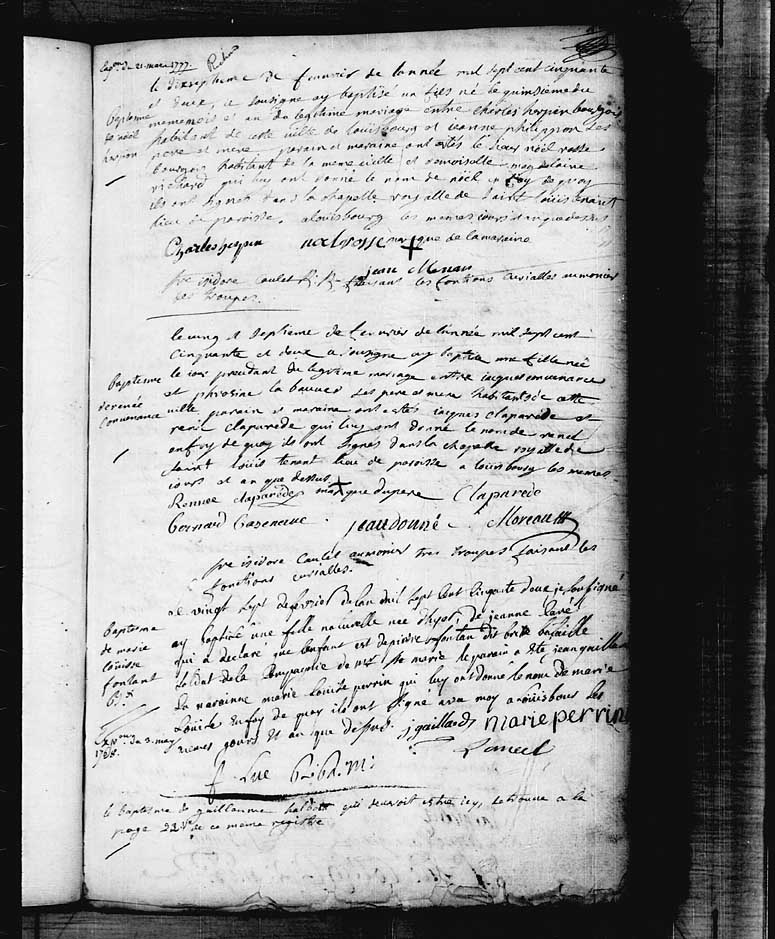 du 21 mars 1777.
le dixseptieme de fevrier de lannée mil sept cent cinquante
et deux, a sousigne ay baptise un fils né le quinsieme du
Baptesme
de noël
herpon
mememois et an du legitime mariage entre charles bourgois
habitant de cete ville de louisbourg et jeanne philippon ses
pere et mere, parain et maraine ont estés le sieur noël rosse
bourgois habitant de la meme ville et demoiselle magdelaine
richard qui luy ont donné le nom de noël en foy de quoy
ils ont signés dans la chapelle royalle de saint louis tenant
lieu de paroisse, a louisbourg les memes jours et an que dessus
Charles noel rosse marque de la maraine
jean
fre isidore caulet faisant les fonctions curialles aumonier
des troupes.
le vingt et septieme de fevrier de lannée mil sept cent
cinquante et deux a sousigne ay baptise une fille née
Baptesme
de renée
Convenance
le jour precedant du legitime mariage entre jaques convenance
et phrosine la bauve ses pere et mere habitants de cette
ville, parain et maraine ont estés jaques claparede et
renée claparede qui luy ont donné le nom de renée
en foy de quoy ils ont signés dans la chapelle royalle de
saint louis tenant lieu de paroisse a louisbourg les memes
jours et an que dessus
Rennee claparede marque du pere Claparede
bernard Caseneuve. jean donné Moreau
fre isidore Caulet aumonier des troupes faisant les
fonctions curialles.
Le vingt sept de fevrier de lan mil sept cent cinquante deux je sousigné
Baptesme
de marie
Louisse
fontant
ay baptisé une fille naturelle née d'hyer, de jeanne
qui a declaré que lenfant est de pierre fontan dit brise bataille
soldat de la Compagnie de mr. ste marie le parain a été jean gaillard
La maraine marie Louise perrin qui luy ont donné le nom de marie
Louise En foy de quoy ils ont signé avec moy a Louisbourg les
du 3. may
1758.
memes jours et an que dessus. j gaillard marie perrin
f. Luc
le baptesme de guillaume qui devroit estre icy, se trouve a la
page 22 de ce meme registre